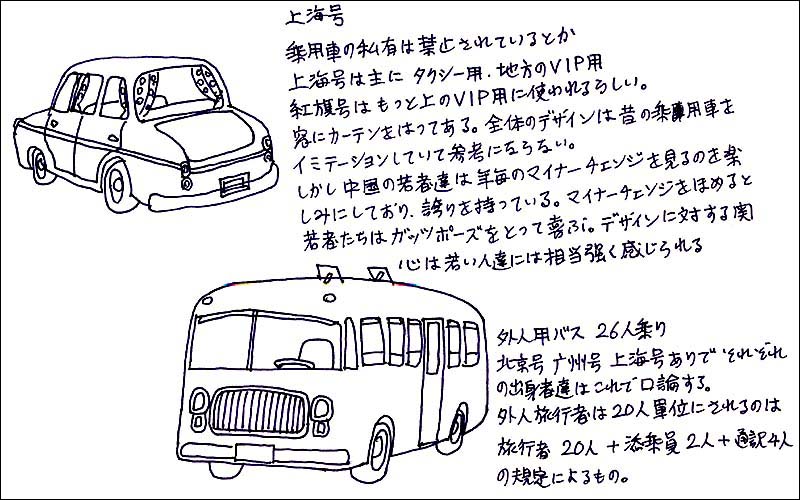 上海号
乗用車の私有は禁止されているとか
上海号は主に タクシー用.地方のVIP用
紅旗号はもっと上のVIP用に使われるらしい。
窓にカーテンをはってある。全体のデザインは昔の乗用車を
イミテーションしていて参考にならない。
しかし中國の若者達は年毎のマイナーチェンジを見るのを楽
しみにしており、誇りを持っている。マイナーチェンジをほめると
若者たちはガッツポーズをとって喜ぶ。デザインに対する関
心は若い人達には相当強く感じられる
外人用バス 26人乗り
北京号 广州号 上海号ありで それぞれ
の出身者達はこれで口論する。
外人旅行者は20人單位にされるのは
旅行者 20人 + 添乗員2人+通訳4人
の規定によるもの。